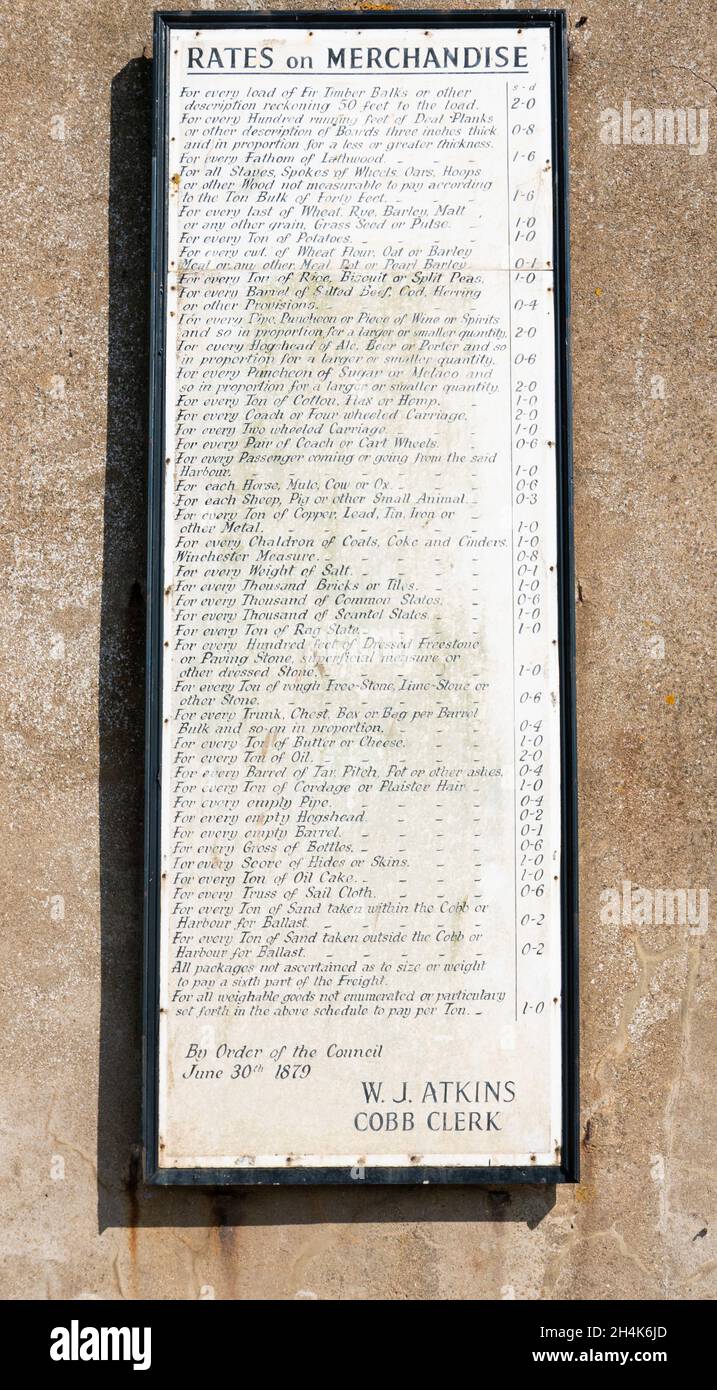 RATES on MERCHANDISE
s - d
For every load of Fir Timber Balks or other
description reckoning 50 feet to the load. 2-0
For every Hundred running feet of Deal Planks
or other description of Boards three inches thick 0-8
and in proportion for a less or greater thickness.
For every Fathom of Lathwood. 1-6
For all Staves, Spokes of Wheels, Oars, Hoops
or other Wood not measurable to pay according
to the Ton Bulk of Forty Feet. 1-6
For every last of Wheat, Rye, Barley, Malt
or any other grain, Grass Seed or Pulse. 1-0
For every Ton of Potatoes. 1-0
For every cwt. of Wheat Flour, Oat or Barley
Meal or any other Meal, Pot or Pearl Barley 0-1
For every Ton of Rice, Biscuit or Split Peas. 1-0
For every Barrel of Salted Beef, Cod, Herring
or other Provisions. 0-4
For every Pipe, Puncheon or Piece of Wine or Spirits
and so in proportion for a larger or smaller quantity. 2-0
For every Hogshead of Ale, Beer or Porter and so
in proportion for a larger or smaller quantity. 0-6
For every Puncheon of Sugar or Melaco and
so in proportion for a larger or smaller quantity. 2-0
For every Ton of Cotton, Flax or Hemp. 1-0
For every Coach or Four wheeled Carriage. 2-0
For every Two wheeled Carriage. 1-0
For every Pair of Coach or Cart Wheels. 0-6
For every Passenger coming or going from the said
Harbour. 1-0
For each Horse, Mule, Cow or Ox. 0-6
For each Sheep, Pig or other Small Animal. 0-3
For every Ton of Copper, Lead, Tin, Iron or
other Metal. 1-0
For every Chaldron of Coals, Coke and Cinders, 1-0
Winchester Measure. 0-8
For every Weight of Salt. 0-1
For every Thousand Bricks or Tiles. 1-0
For every Thousand of Common Slates. 0-6
For every Thousand of Scantel Slates. 1-0
For every Ton of Rag Slate. 1-0
For every Hundred feet of Dressed Freestone
or Paving Stone, superficial measure or
other dressed Stone. 1-0
For every Ton of rough Free-Stone, Lime-Stone or
other Stone. 0-6
For every Trunk, Chest, Box or Bag per Barrel
Bulk and so on in proportion. 0-4
For every Ton of Butter or Cheese. 1-0
For every Ton of Oil. 2-0
For every Barrel of Tar, Pitch, Pot or other ashes. 0-4
For every Ton of Cordage or Plaister Hair 1-0
For every empty Pipe. 0-4
For every empty Hogshead. 0-2
For every empty Barrel. 0-1
For every Gross of Bottles. 0-6
For every Score of Hides or Skins. 1-0
For every Ton of Oil Cake. 1-0
For every Truss of Sail Cloth. 0-6
For every Ton of Sand taken within the Cobb or
Harbour for Ballast. 0-2
For every Ton of Sand taken outside the Cobb or
Harbour for Ballast. 0-2
All packages not ascertained as to size or weight
to pay a sixth part of the Freight.
For all weighable goods not enumerated or particulary
set forth in the above schedule to pay per Ton. 1-0
By Order of the Council
June 30th 1879
W. J. ATKINS
COBB CLERK
alamy
Image ID: 2H4K6JD
www.alamy.com